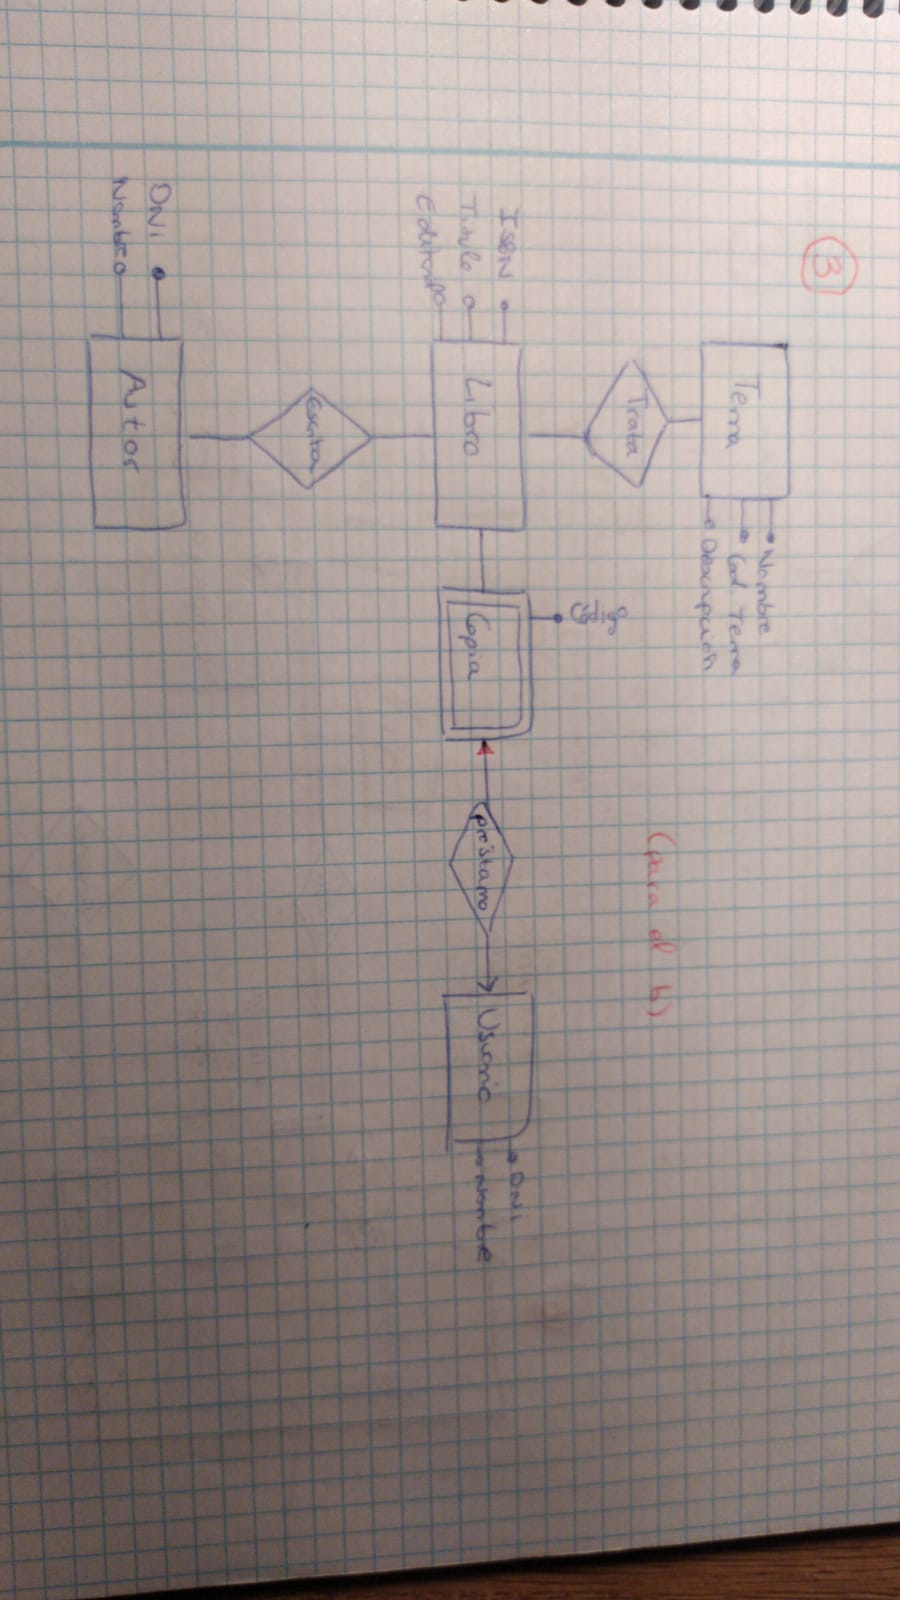 3
Tema
Nombre
Cod. Tema
Descripción
Trata
(para el b)
Código
ISBN
Titulo
Editorial
Libro
Copia
préstamo
Usuario
DNI
Nombre
Escrito
DNI
Nombre
Autor